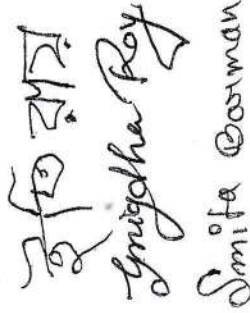 রায়
Snigdha Roy
Smita Barman